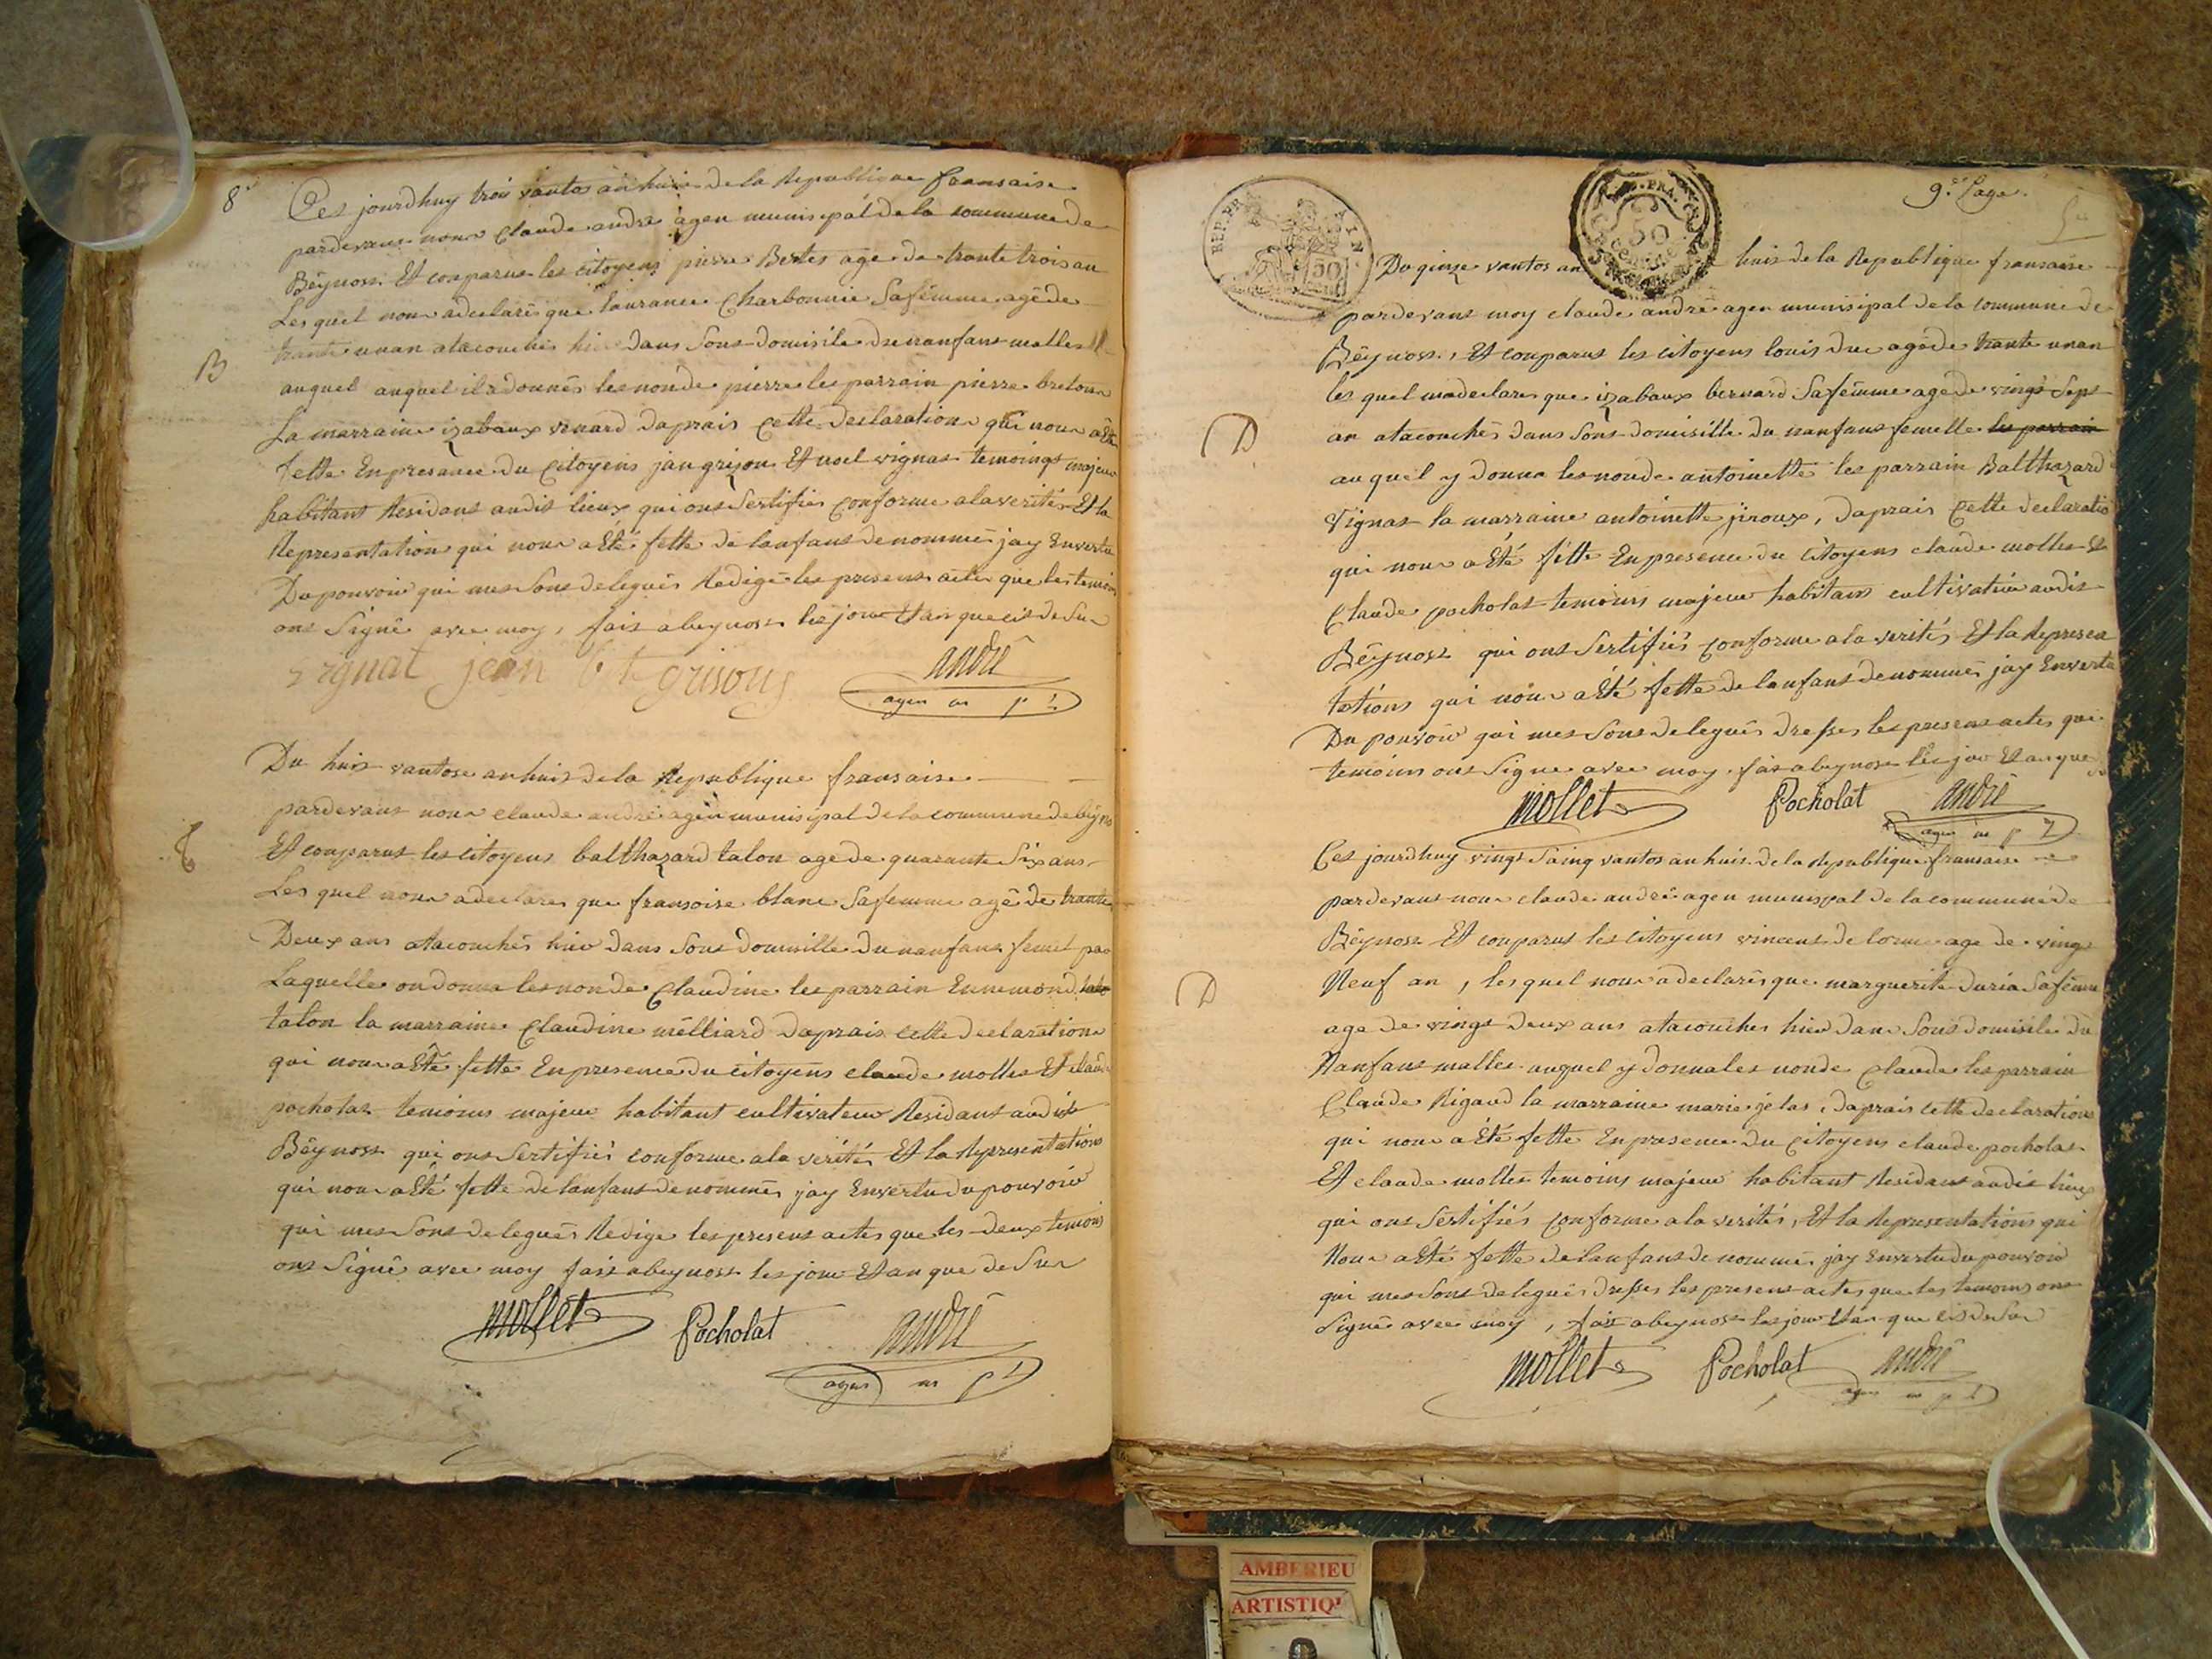 8
Ces jourdhuy trois vantos an huis de la Republique fransaise
pardevans nous Claude andré agen munisipal de la commune de
Bëynoss Et conparus les citoyens pierre Bertes age de trante trois an
Les quel nous a declarés que Charbonnie Safemme agéde
trante unan atacouchés hier dans Sons domisile dunanfans malles
B
auquel auquel il a donnés les nonde pierre les parrain pierre breton
La marraine izabaux venard daprais cette declarations qui nous a Eté
fette En presance du Citoyens jan grizon Et noel vignat temoings majeur
habitant Residans audit lieux qui ons Sertifiés conforme ala verités Et la
Representation qui nous a Eté fette de lanfans denommés jay Envertu
Du pouvoir qui mes Sons delegués Redigé les presens actes que les temoin
ons Signé avec moy, fais a beynoss les jour Et an que cis de Sus
vignat jean grisons andré
agen m pl
Du huis vantose an huis de la Republique fransaise
pardevans nous claude andré agen munisipal de la commune de bëyno
Et conparus les citoyens balthazard talon age de quarante Six ans
Les quel nous a declares que fransoise blanc Safemme agé de trante
Deux ans atacouchés hier dans Sons domisille dunanfans femel
Laquelle on donna les nonde Claudine les parrain Ennemond
talon la marraine Claudine mëlliard daprais cette declarations
qui nous a Eté fette En presence du citoyens claude molles Et claude
pocholas temoins majeur habitant cultivateur Residans audit
Bëynoss qui ons Sertifiés conforme ala vérités Et la Representations
qui nous a Eté fette de lanfans denommés jay Envertu du pouvoir
qui mes Sons delegués Redige les presens actes que les deux temoins
ons Signé avec moy fais a beynoss les jour Et an que de Sus
Mollet Pocholat andré
agen m pl
9.e Page.
REP. FRA
50
50
Du qinze vantos an huis de la Republique fransaise
pardevans moy claude andré agen munisipal de la commune de
Bëynoss, Et conparus les citoyens louis duc agéde trante unan
les quel ma declares que izabaux bernard Safemme age de vingt Sept
D
an atacouchés dans Sons domisille du nanfans femelle les parrain
auquel y donna les nonde antoinette les parrain Balthazard
Vignat la marraine antoinette jiroux, daprais Cette declaratio
qui nous a Eté fette En presence du Citoyens claude molles Et
Claude pocholas temoins majeur habitans cultivateur audis
Bëynoss qui ons Sertifiés conforme ala verités Et la Represen
tations qui nous a Eté fette de lanfans denommés jay Envertu
Du pouvoir qui mes Sons delegués dresses les presens actes que
temoins ons Signe avec moy fais a beynoss les jour Et an que
Mollet Pocholat andré
agen m pl
Ces jourdhuy vingt Saing vantos an huis de la Republique fransaise
pardevans nous claude andré agen munispal de la commune de
Bëynoss Et conparus les citoyens vincens delorme age de vingt
D
Neuf an, les quel nous a declarés que marguerite Safemme
age de vingt deux ans atacouches hier dans Sons domisile du
Nanfans malles auquel y donna les nonde Claude les parrain
Claude Rigaud la marraine marie , daprais cette declarations
qui nous a Eté fette En presence du Citoyens claude pocholas
Et claude molles temoins majeur habitant Residans audis lieux
qui ons Sertifiés conforme ala verités, Et la Representations qui
Nous a Eté fette de lanfans denommés jay Envertu du pouvoir
qui mes Sons delegués dresses les presens actes que les temoins ons
Signé avec moy, fais a beynoss les jour Et an que cis de Sus
Mollet Pocholat andré
agen m pl
AMBERIEU
ARTISTIQ